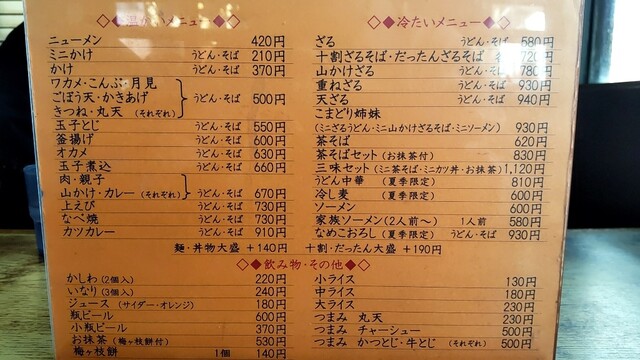 ◇◆温かいメニュー◆◇
ニューメン 420円
ミニかけ うどん・そば 210円
かけ うどん・そば 370円
ワカメ・こんぶ・月見
ごぼう天・かきあげ うどん・そば 500円
きつね・丸天(それぞれ)
玉子とじ うどん・そば 550円
釜揚げ うどん・そば 600円
オカメ うどん・そば 630円
玉子煮込 うどん・そば 660円
肉・親子
山かけ・カレー(それぞれ) うどん・そば 670円
上えび うどん・そば 730円
なべ焼 うどん・そば 730円
カツカレー うどん・そば 910円
◇◆冷たいメニュー◆◇
ざる うどん・そば 580円
十割ざるそば・だったんざるそば 720円
山かけざる うどん・そば 780円
重ねざる うどん・そば 930円
天ざる うどん・そば 940円
こまどり姉妹
(ミニざるうどん・ミニ山かけざるそば・ミニソーメン) 930円
茶そば 620円
茶そばセット(お抹茶付) 830円
三味セット(ミニ茶そば・ミニカツ丼・お抹茶) 1,120円
うどん中華(夏季限定) 810円
冷し麦(夏季限定) 600円
ソーメン 600円
家族ソーメン(2人前〜) 1人前 580円
なめこおろし(夏季限定) うどん・そば 930円
麺・丼物大盛 +140円 十割・だったん大盛 +190円
◇◆飲み物・その他◆◇
かしわ(2個入) 220円
いなり(3個入) 240円
ジュース(サイダー・オレンジ) 180円
瓶ビール 600円
小瓶ビール 370円
お抹茶(梅ヶ枝餅付) 530円
梅ヶ枝餅 1個 140円
小ライス 130円
中ライス 180円
大ライス 230円
つまみ 丸天 230円
つまみ チャーシュー 500円
つまみ かつとじ・牛とじ(それぞれ) 500円